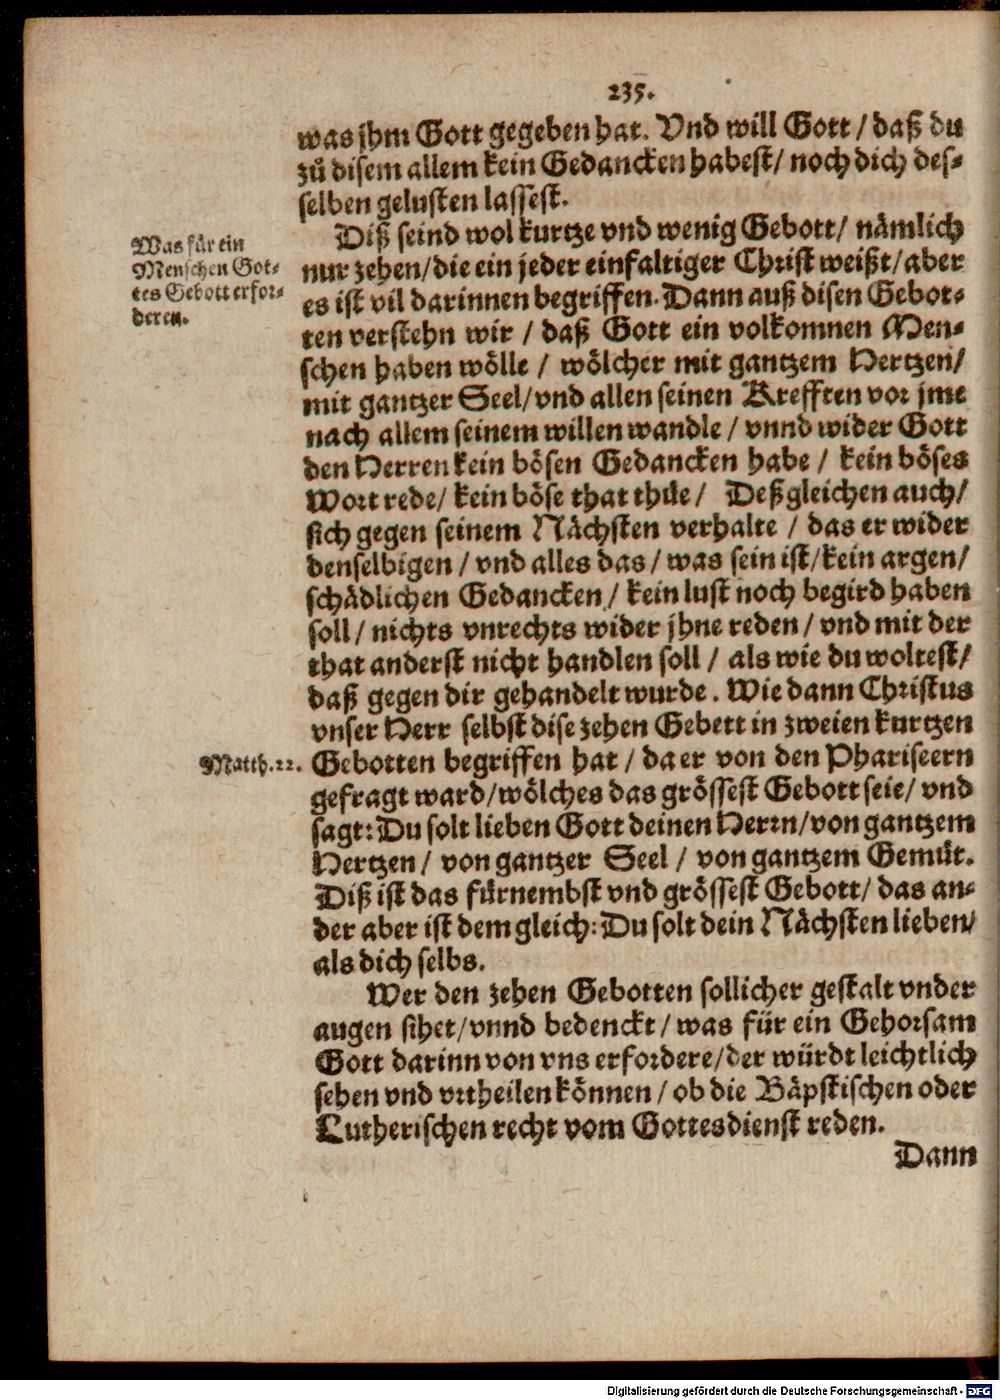 235.
was jhm Gott gegeben hat. Vnd will Gott / daß du
zů disem allem kein Gedancken habest / noch dich des-
selben gelusten lassest.
Was für ein
Menschen Got-
tes Gebott erfor-
deren.
Diß seind wol kurtze vnd wenig Gebott / nämlich
nur zehen / die ein jeder einfaltiger Christ weißt / aber
es ist vil darinnen begriffen. Dann auß disen Gebot-
ten verstehn wir / daß Gott ein volkomnen Men-
schen haben wölle / wölcher mit gantzem Hertzen /
mit gantzer Seel / vnd allen seinen Krefften vor jme
nach allem seinem willen wandle / vnnd wider Gott
den Herren kein bösen Gedancken habe / kein böses
Wort rede / kein böse that thüe / Deßgleichen auch /
sich gegen seinem Nächsten verhalte / das er wider
denselbigen / vnd alles das / was sein ist / kein argen /
schädlichen Gedancken / kein lust noch begird haben
soll / nichts vnrechts wider jhne reden / vnd mit der
that anderst nicht handlen soll / als wie du woltest /
daß gegen dir gehandelt wurde. Wie dann Christus
vnser Herr selbst dise zehen Gebett in zweien kurtzen
Matth. 22.
Gebotten begriffen hat / da er von den Phariseern
gefragt ward / wölches das grössest Gebott seie / vnd
sagt: Du solt lieben Gott deinen Herrn / von gantzem
Hertzen / von gantzer Seel / von gantzem Gemüt.
Diß ist das fürnembst vnd grössest Gebott / das an-
der aber ist dem gleich: Du solt dein Nächsten lieben /
als dich selbs.
Wer den zehen Gebotten sollicher gestalt vnder
augen sihet / vnnd bedenckt / was für ein Gehorsam
Gott darinn von vns erfordere / der würdt leichtlich
sehen vnd vrtheilen können / ob die Bäpstischen oder
Lutherischen recht vom Gottesdienst reden.
Dann
Digitalisierung gefördert durch die Deutsche Forschungsgemeinschaft - DFG